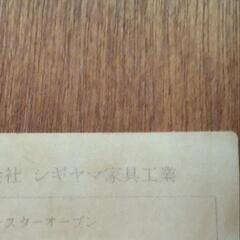 会社 シギヤマ家具工業
スターオープン